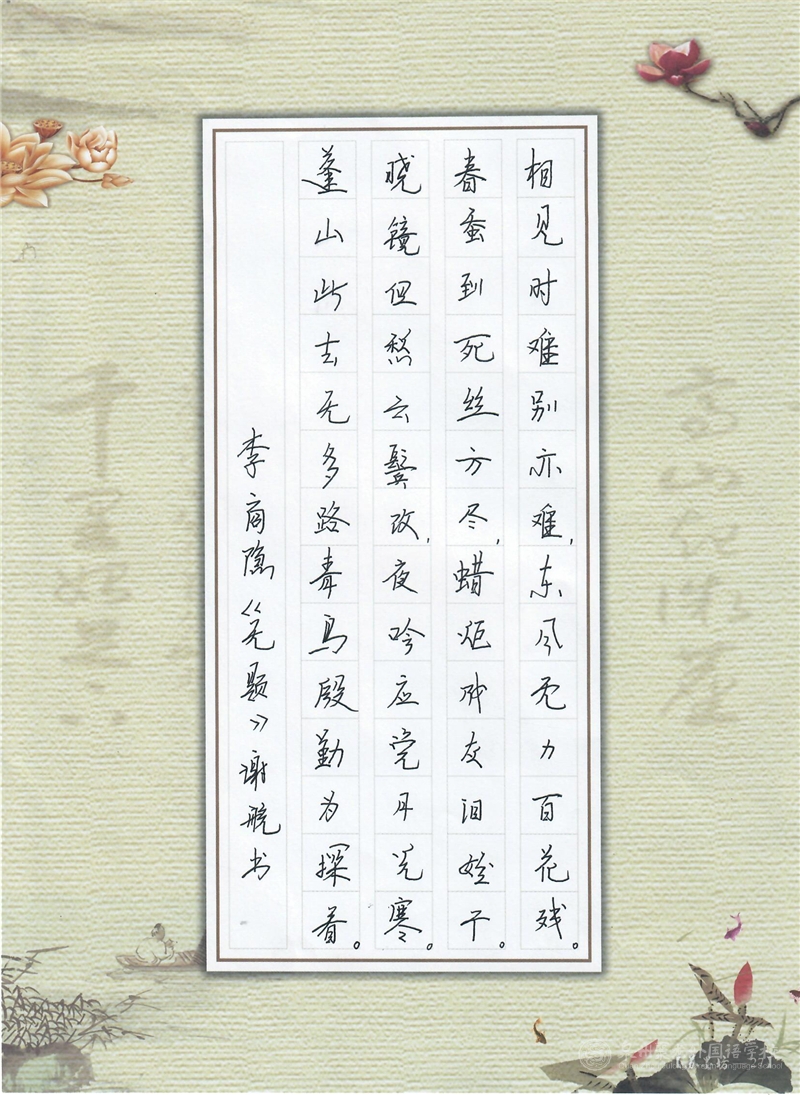 相见时难别亦难,东风无力百花残。
春蚕到死丝方尽,蜡炬成灰泪始干。
晓镜但愁云鬓改,夜吟应觉月光寒。
蓬山此去无多路青鸟殷勤为探看。
李商隐《无题》谢晓书